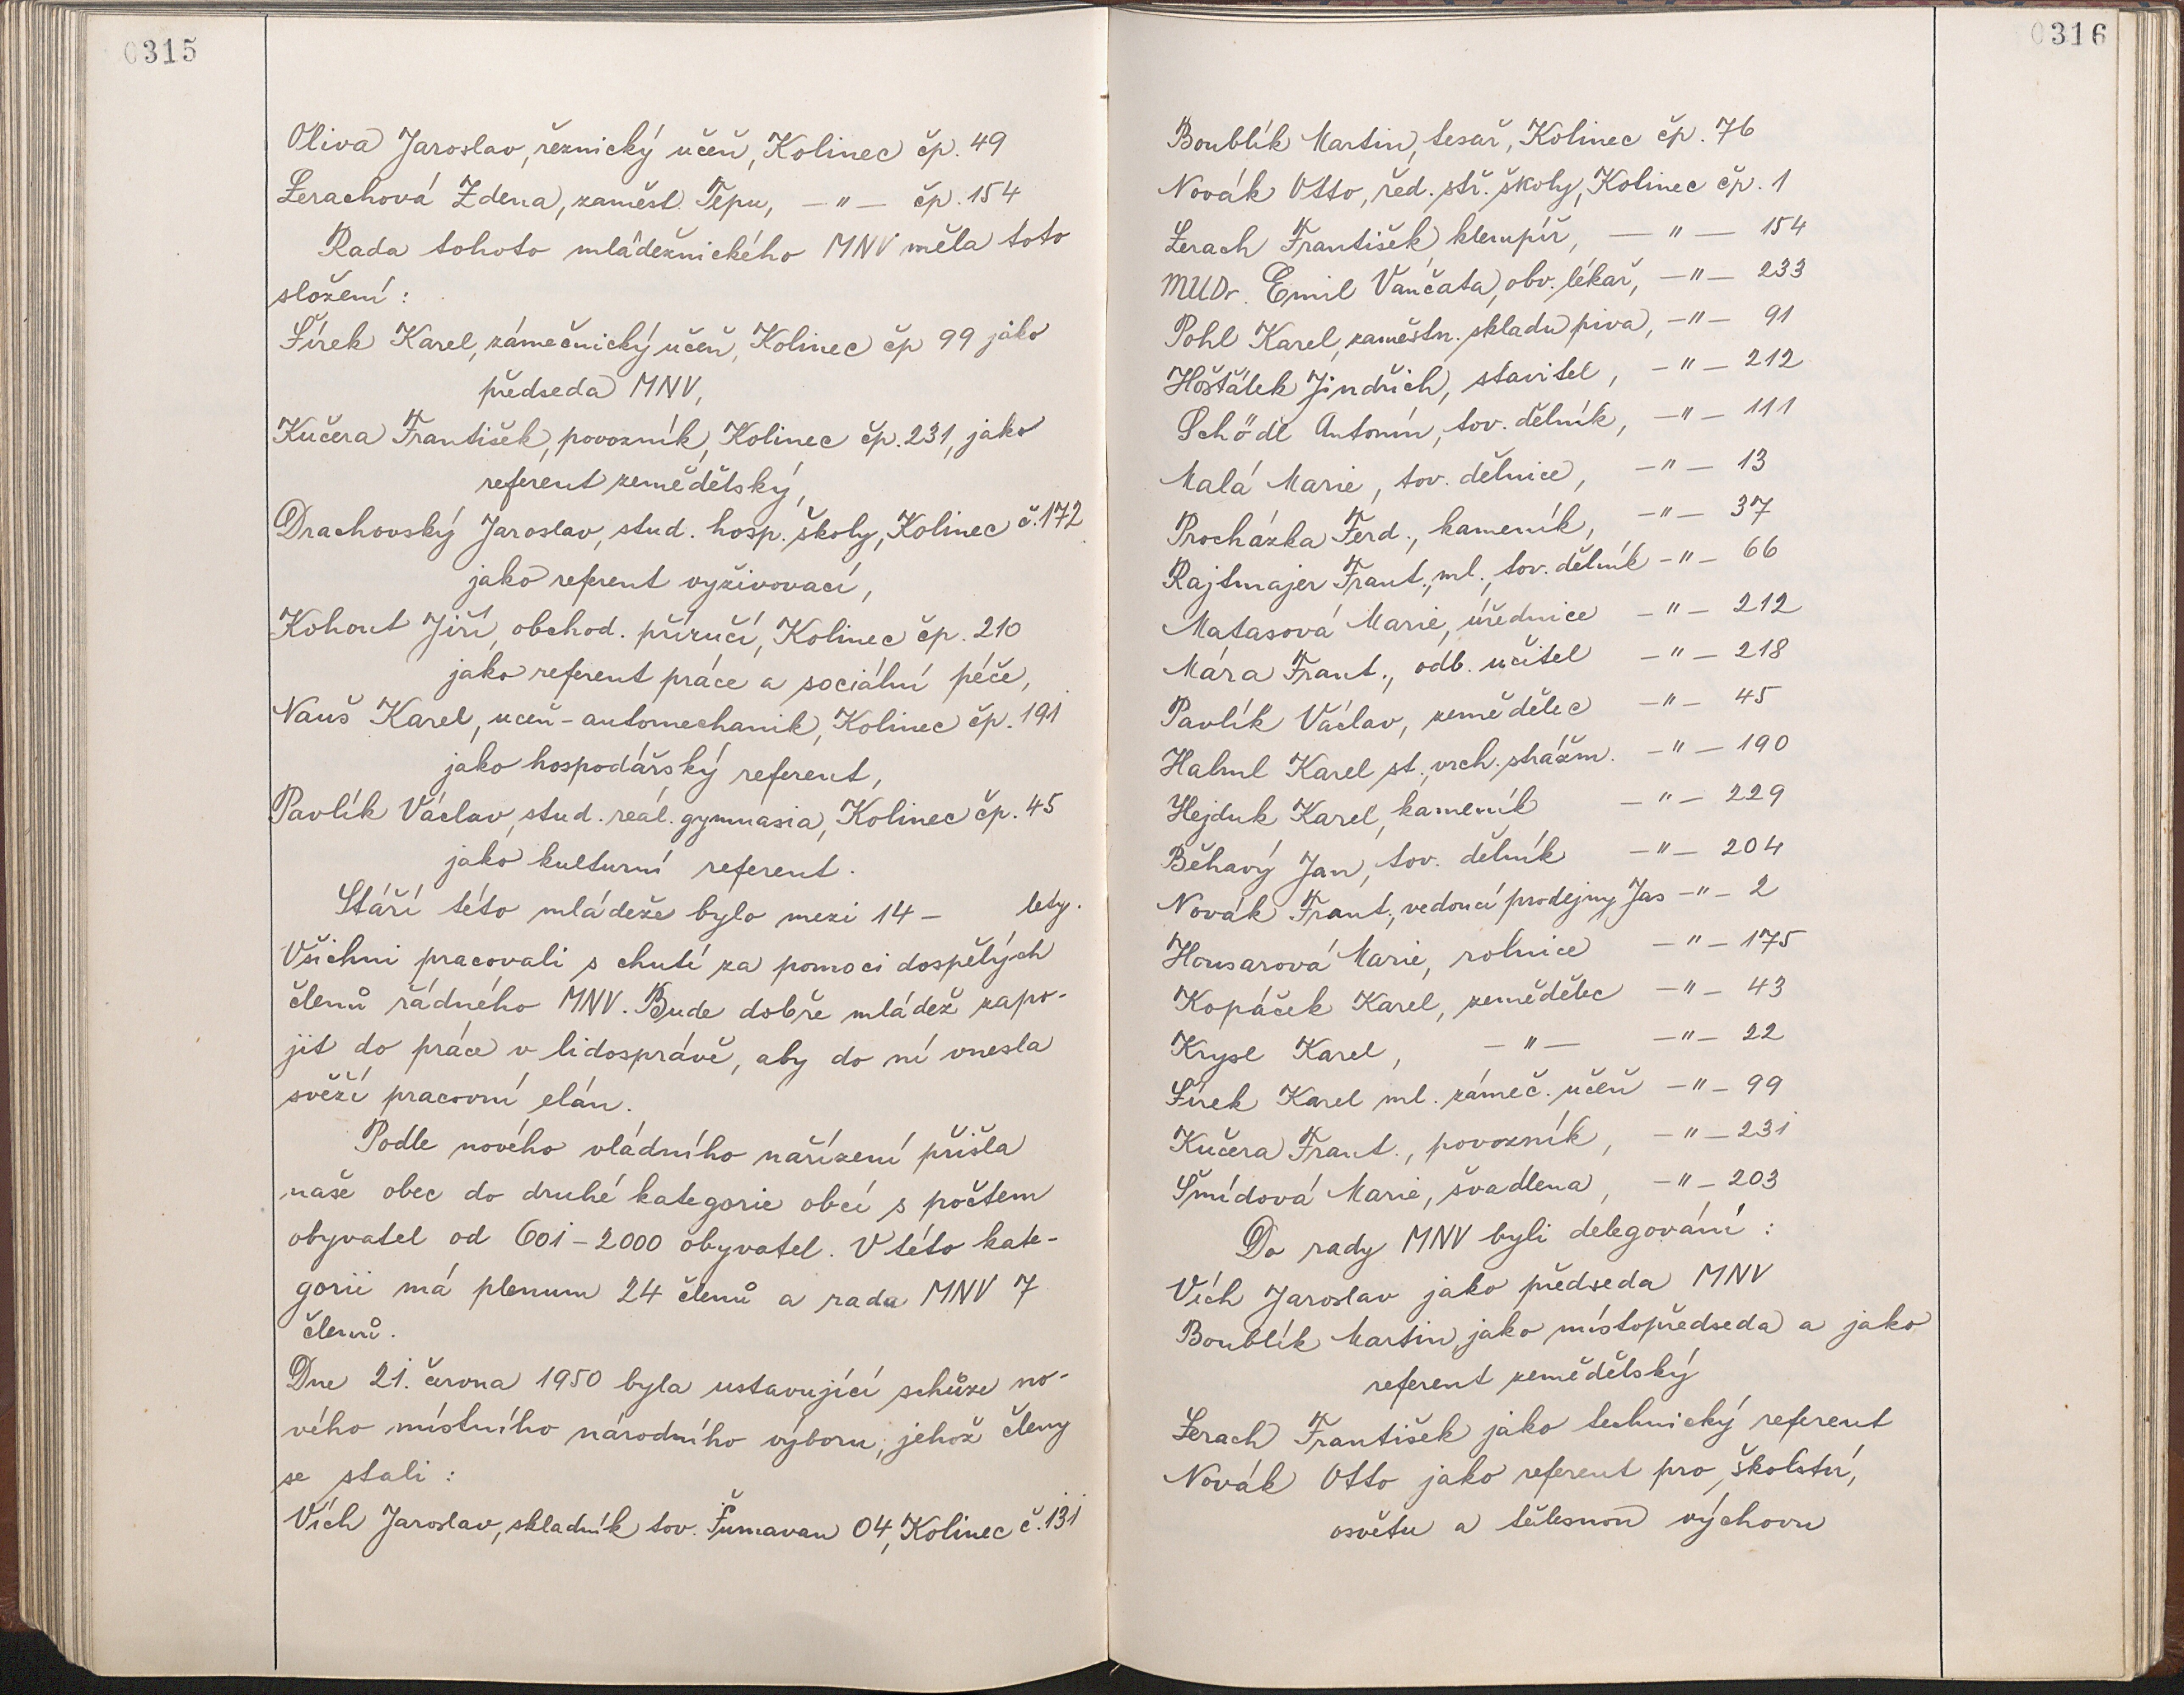 0315
Oliva Jaroslav, řeznický učeň, Kolinec čp. 49
Lerachová Zdena, zaměst. Tepu, —"— čp. 154
Rada tohoto mládežnického MNV měla toto
složení:
Šírek Karel, zámečnický učeň, Kolinec čp 99 jako
předseda MNV,
Kučera František, povozník, Kolinec čp. 231, jako
referent zemědělský,
Drachovský Jaroslav, stud. hosp. školy, Kolinec č. 172
jako referent vyživovací,
Kohout Jiří, obchod. příručí, Kolinec čp. 210
jako referent práce a sociální péče,
Nauš Karel, učeň-automechanik, Kolinec čp. 191
jako hospodářský referent,
Pavlík Václav, stud. reál. gymnasia, Kolinec čp. 45
jako kulturní referent.
Stáří této mládeže bylo mezi 14 – lety.
Všichni pracovali s chutí za pomoci dospělých
členů řádného MNV. Bude dobře mládež zapo-
jit do práce v lidosprávě, aby do ní vnesla
svěží pracovní elán.
Podle nového vládního nařízení přišla
naše obec do druhé kategorie obcí s počtem
obyvatel od 601–2000 obyvatel. V této kate-
gorii má plenum 24 členů a rada MNV 7
členů.
Dne 21. června 1950 byla ustavující schůze no-
vého místního národního výboru, jehož členy
se stali:
Vích Jaroslav, skladník tov. Šumavan 04, Kolinec č. 131
0316
Boublík Martin, tesař, Kolinec čp. 76
Novák Otto, řed. stř. školy, Kolinec čp. 1
Lerach František, klempíř, —"— 154
MUDr. Emil Vančata, obv. lékař, —"— 233
Pohl Karel, zaměstn. skladu piva, —"— 91
Hošťálek Jindřich, stavitel, —"— 212
Schödl Antonín, tov. dělník, —"— 111
Malá Marie, tov. dělnice, —"— 13
Procházka Ferd., kameník, —"— 37
Rajtmajer Frant., ml., tov. dělník —"— 66
Matasová Marie, úřednice —"— 212
Mára Frant., odb. učitel —"— 218
Pavlík Václav, zemědělec —"— 45
Halml Karel st., vrch. strážm. —"— 190
Hejduk Karel, kameník —"— 229
Běhavý Jan, tov. dělník —"— 204
Novák Frant., vedoucí prodejny Jas —"— 2
Housarová Marie, rolnice —"— 175
Kopáček Karel, zemědělec —"— 43
Krysl Karel, —"— —"— 22
Šírek Karel ml. zámeč. učeň —"— 99
Kučera Frant., povozník, —"— 231
Šmídová Marie, švadlena, —"— 203
Do rady MNV byli delegováni:
Vích Jaroslav jako předseda MNV
Boublík Martin, jako místopředseda a jako
referent zemědělský
Lerach František jako technický referent
Novák Otto jako referent pro školství,
osvětu a tělesnou výchovu